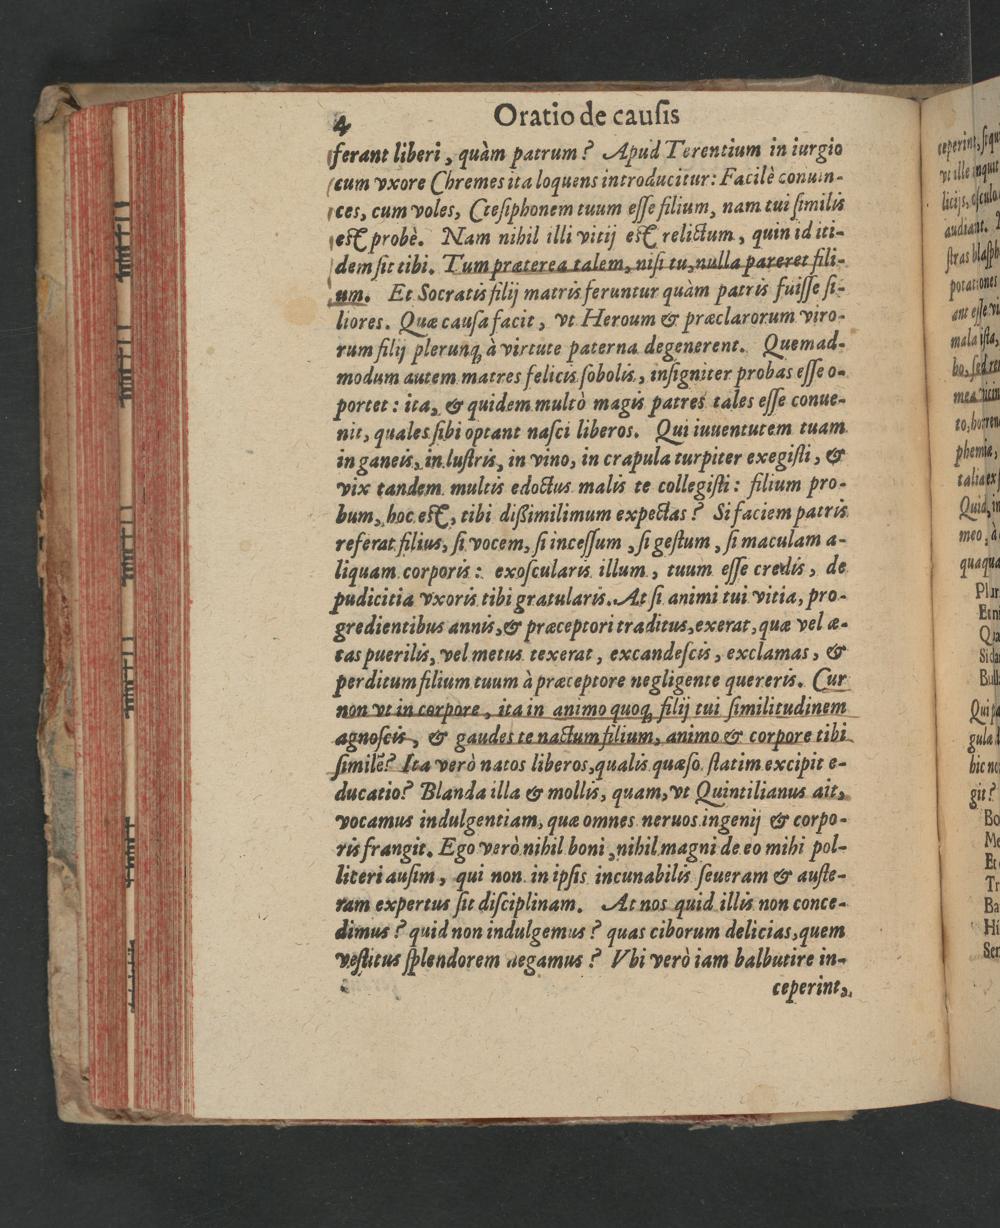 4
Oratio de causis
ferant liberi, quàm patrum? Apud Terentium in iurgio
cum vxore Chremes ita loquens introducitur: Facilè conuin-
ces, cum voles, Ctesiphonem tuum esse filium, nam tui similis
est probè. Nam nihil illi vitij est relictum, quin id iti-
dem sit tibi. Tum præterea talem, nisi tu, nulla pareret fili-
um. Et Socratis filij matris feruntur quàm patris fuisse si-
liores. Quæ causa facit, vt Heroum & præclarorum viro-
rum filij plerunq; à virtute paterna degenerent. Quemad-
modum autem matres felicis sobolis, insigniter probas esse o-
portet: ita, & quidem multò magis patres tales esse conue-
nit, quales sibi optant nasci liberos. Qui iuuentutem tuam
in ganeis, in lustris, in vino, in crapula turpiter exegisti, &
vix tandem multis edoctus malis te collegisti: filium pro-
bum, hoc est, tibi dißimilimum expectas? Si faciem patris
referat filius, si vocem, si incessum, si gestum, si maculam a-
liquam corporis: exoscularis illum, tuum esse credis, de
pudicitia vxoris tibi gratularis. At si animi tui vitia, pro-
gredientibus annis, & præceptori traditus, exerat, quæ vel æ-
tas puerilis, vel metus texerat, excandescis, exclamas, &
perditum filium tuum à præceptore negligente quereris. Cur
non vt in corpore, ita in animo quoq; filij tui similitudinem
agnoscis, & gaudes te nactum filium, animo & corpore tibi
simile? Ita verò natos liberos, qualis quæso statim excipit e-
ducatio? Blanda illa & mollis, quam, vt Quintilianus ait,
vocamus indulgentiam, quæ omnes neruos ingenij & corpo-
ris frangit. Ego verò nihil boni, nihil magni de eo mihi pol-
liceri ausim, qui non in ipsis incunabilis seueram & auste-
ram expertus sit disciplinam. At nos quid illis non conce-
dimus? quid non indulgemus? quas ciborum delicias, quem
vestitus splendorem negamus? Vbi verò iam balbutire in-
ceperint,